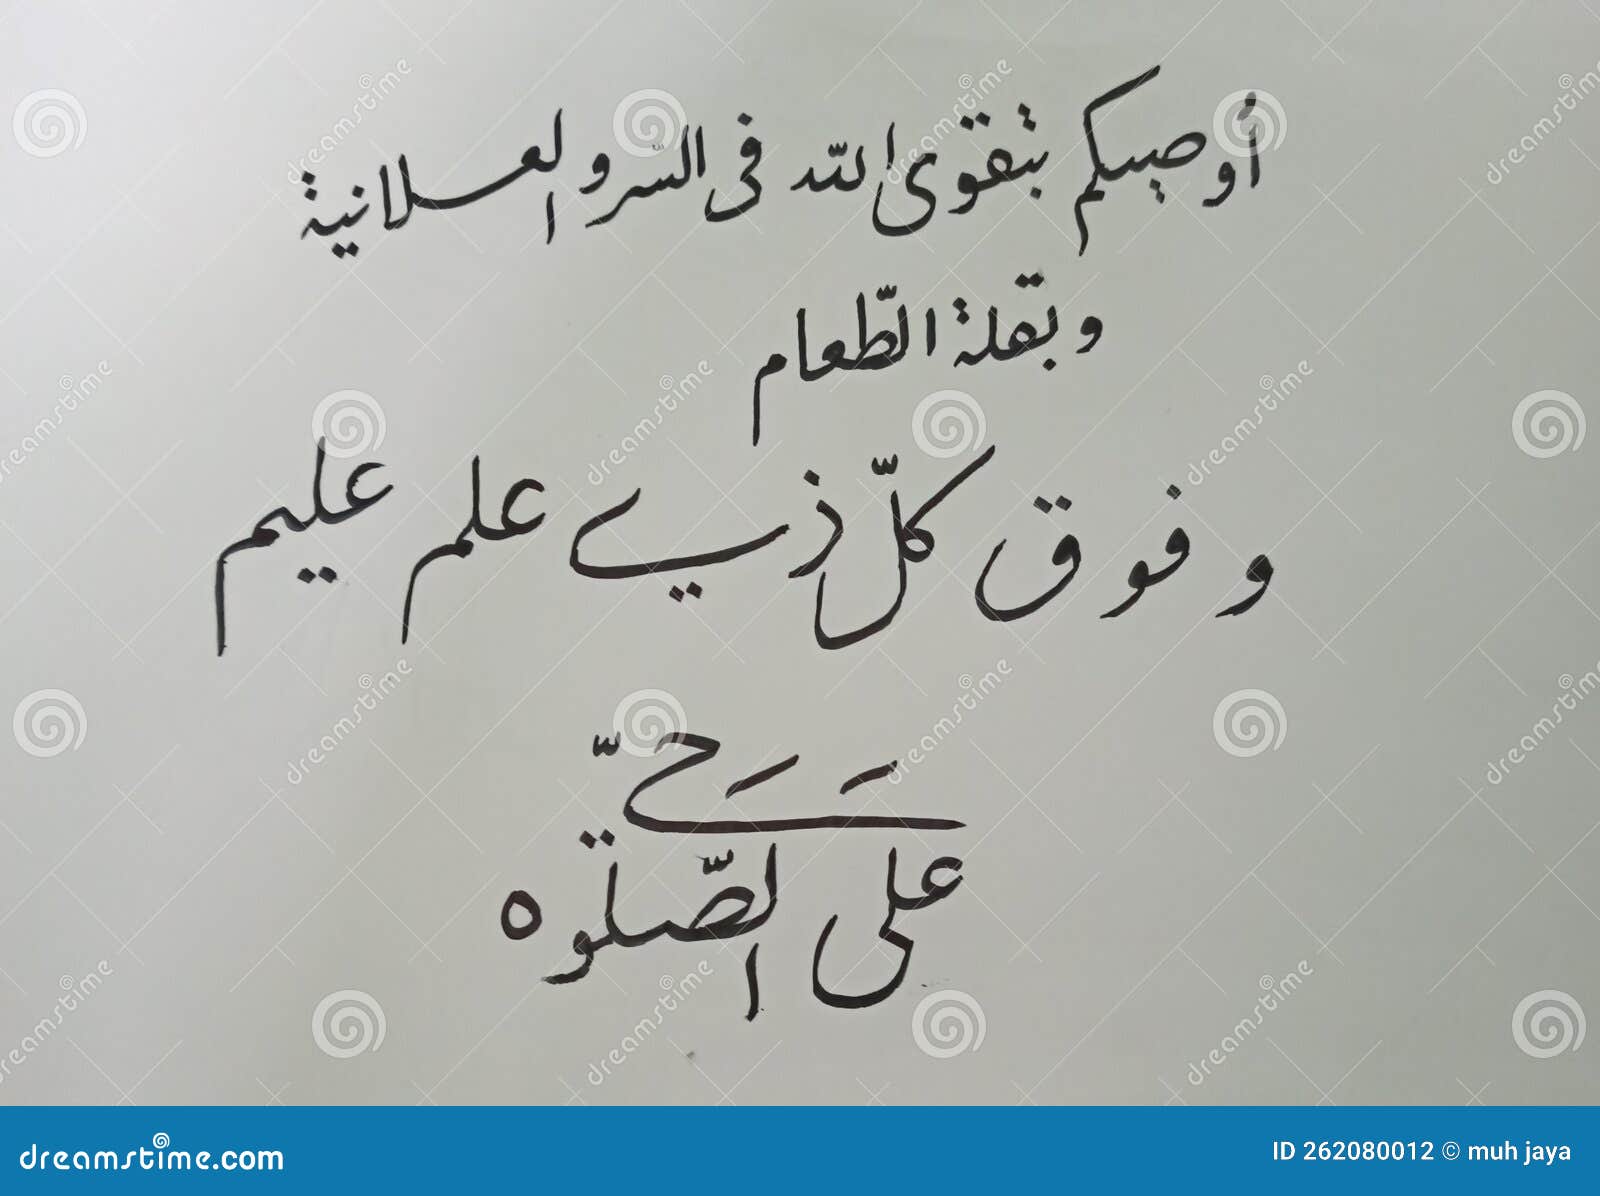 أوصيكم بتقوى الله فى السّر والعلانية
وبقلة الطّعام
وفوق كلّ ذي علم عليم
حيّ
على الصّلوة
dreamstime.com
ID 262080012 © muh jaya